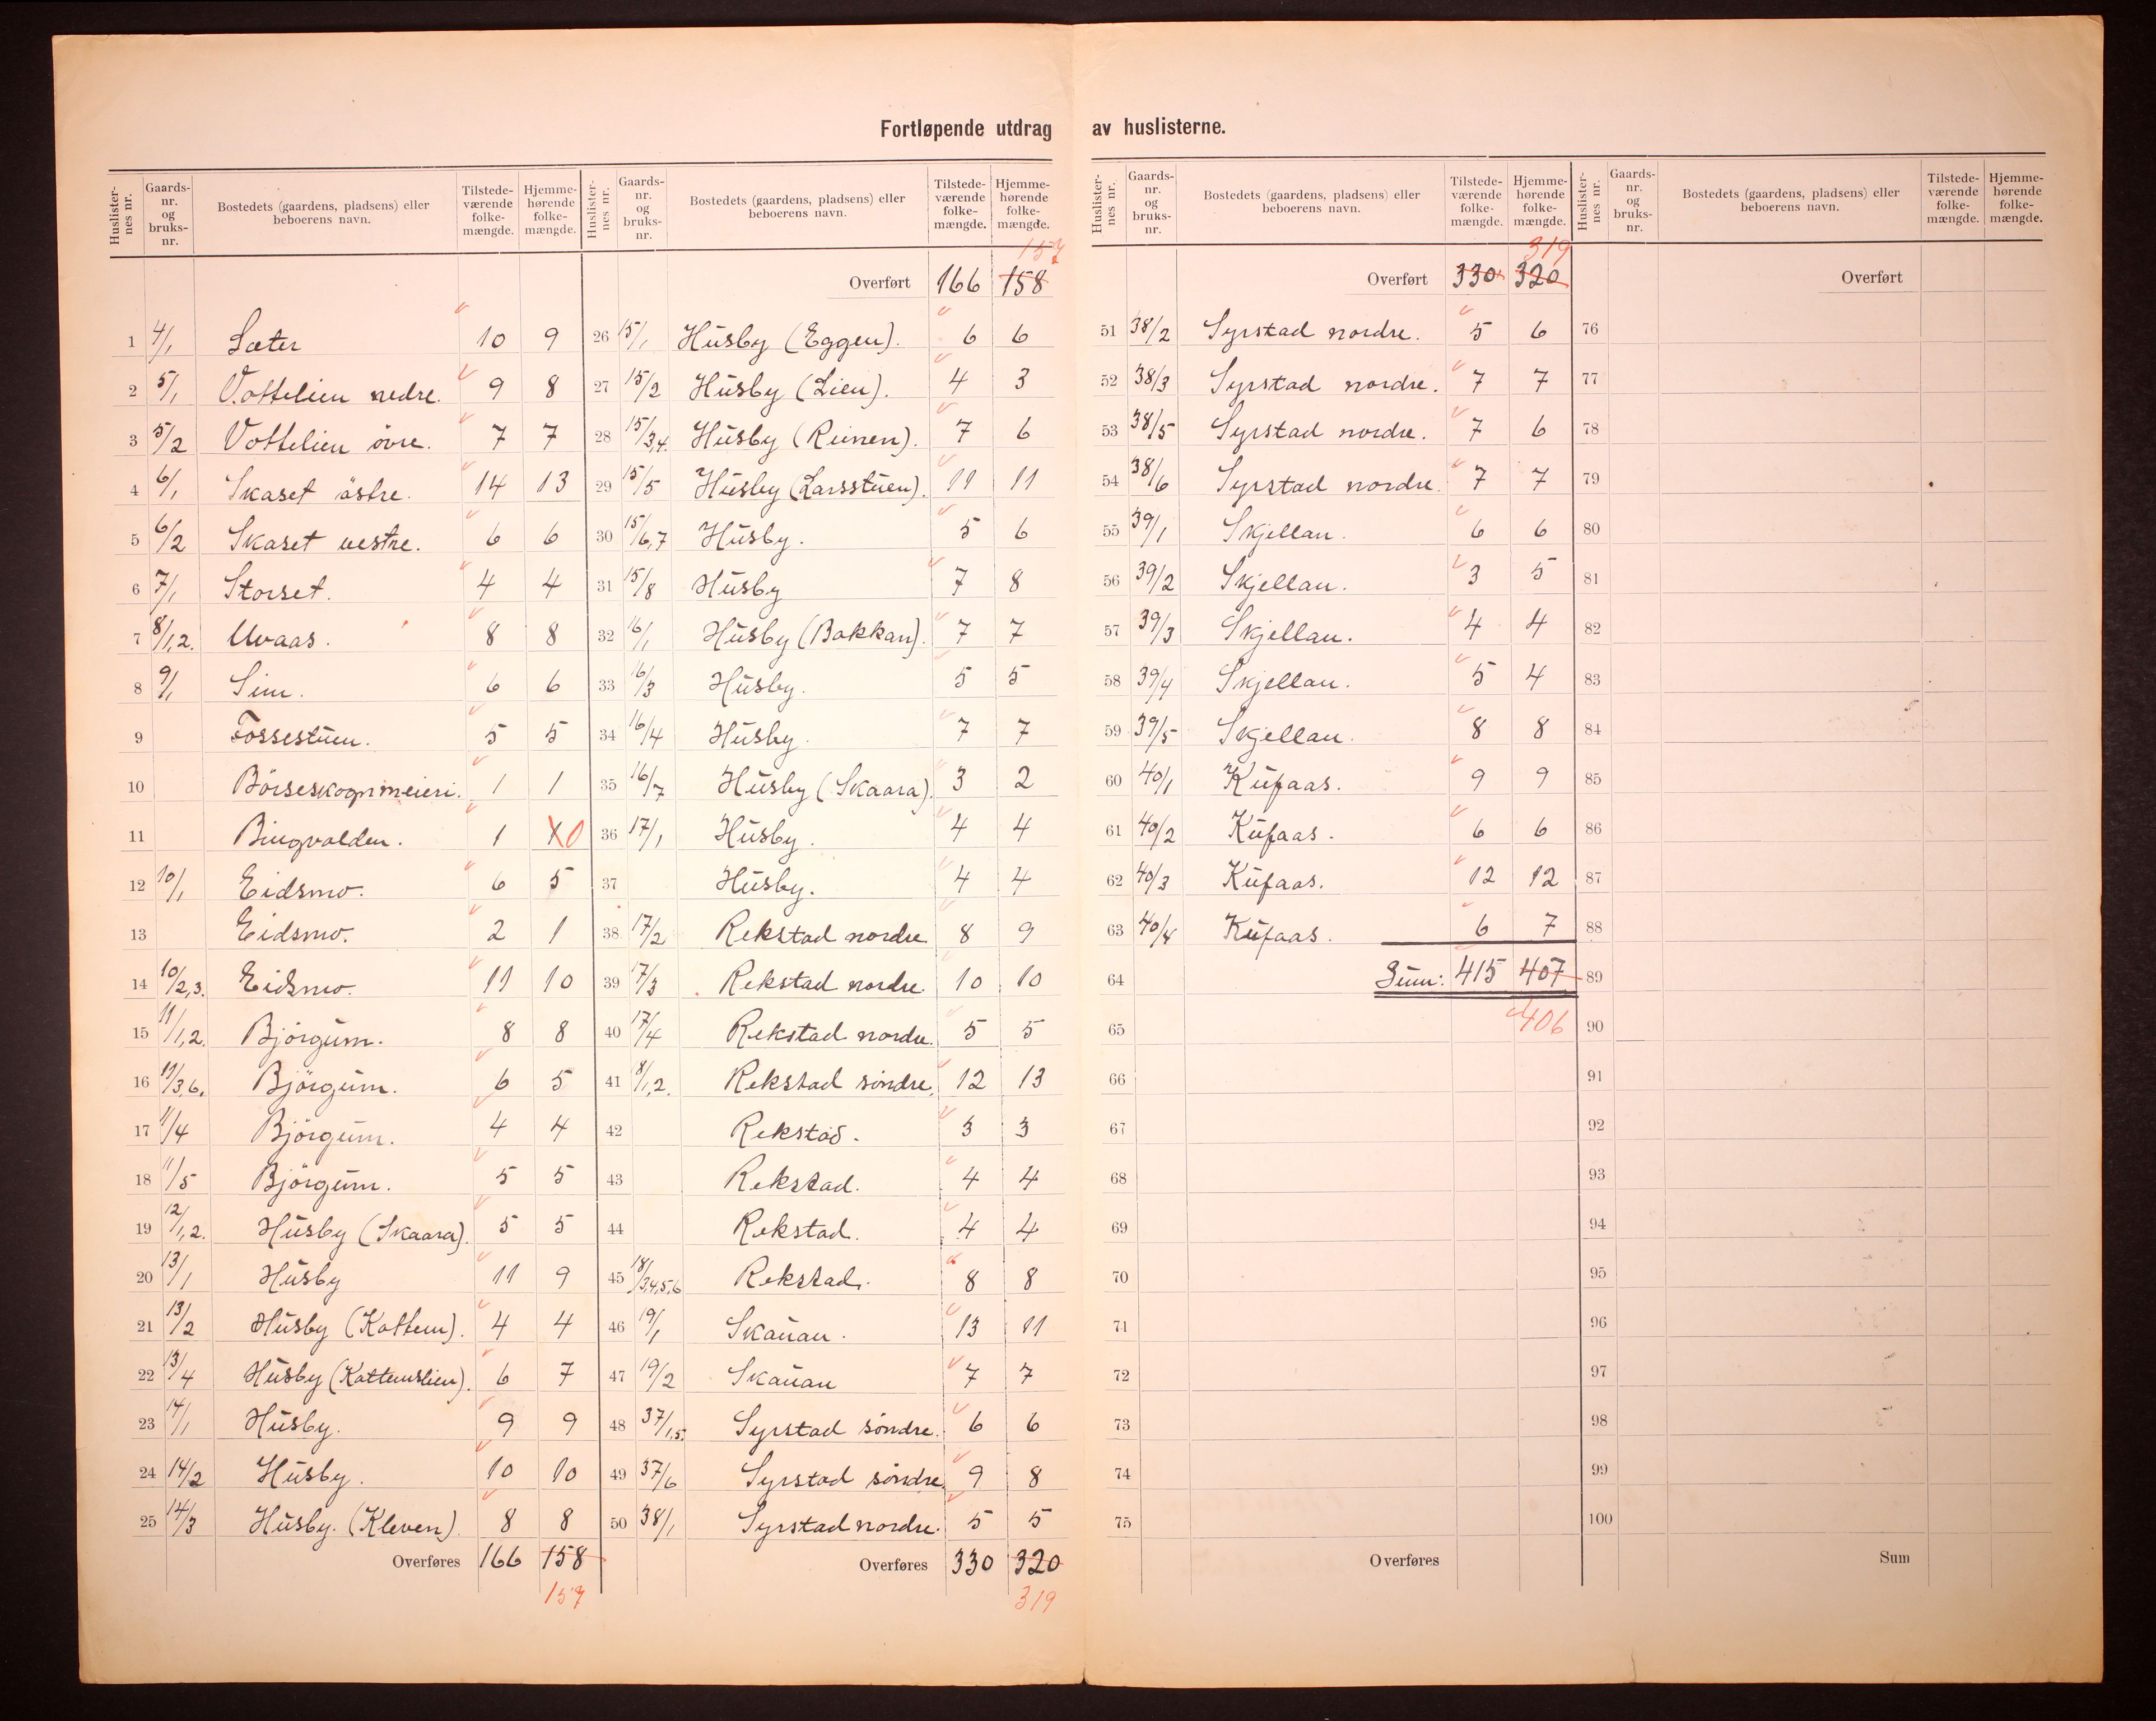 Fortløpende utdrag av huslisterne.
Huslister-nes nr. Gaards-nr. og bruks-nr. Bostedets (gaardens, pladsens) eller beboerens navn. Tilstede-værende folke-mængde. Hjemme-hørende folke-mængde.
1 4/1 Sæter 10 9
2 5/1 Vottelien nedre. 9 8
3 5/2 Vottelien övre. 7 7
4 6/1 Skaset östre. 14 13
5 6/2 Skaset vestre. 6 6
6 7/1 Storset. 4 4
7 8/1,2. Uvaas. 8 8
8 9/1 Sim. 6 6
9 Fossestuen. 5 5
10 Börseskognmeieri. 1 1
11 Bingvolden. 1 1 0
12 10/1 Eidsmo. 6 5
13 Eidsmo. 2 1
14 10/2,3. Eidsmo. 11 10
15 11/1,2. Björgum. 8 8
16 11/3,6. Björgum. 6 5
17 11/4 Björgum. 4 4
18 11/5 Björgum. 5 5
19 12/1,2. Husby (Skaara). 5 5
20 13/1 Husby 11 9
21 13/2 Husby (Kattem). 4 4
22 13/4 Husby (Kattemslien). 6 7
23 14/1 Husby. 9 9
24 14/2 Husby. 10 10
25 14/3 Husby. (Kleven). 8 8
Overføres 166 158
157
Huslister-nes nr. Gaards-nr. og bruks-nr. Bostedets (gaardens, pladsens) eller beboerens navn. Tilstede-værende folke-mængde. Hjemme-hørende folke-mængde.
157
Overført 166 158
26 15/1 Husby (Eggen). 6 6
27 15/2 Husby (Lien). 4 3
28 15/3,4. Husby (Reinen). 7 6
29 15/5 Husby (Larsstuen). 11 11
30 15/6,7 Husby. 5 6
31 15/8 Husby 7 8
32 16/1 Husby (Bakkan). 7 7
33 16/3 Husby. 5 5
34 16/4 Husby. 7 7
35 16/7 Husby (Skaara). 3 2
36 17/1 Husby. 4 4
37 Husby. 4 4
38 17/2 Rekstad nordre 8 9
39 17/3 Rekstad nordre. 10 10
40 17/4 Rekstad nordre. 5 5
41 8/1,2. Rekstad söndre. 12 13
42 Rekstad. 3 3
43 Rekstad. 4 4
44 Rekstad. 4 4
45 18/3,4,5,6 Rekstad. 8 8
46 19/1 Skauan. 13 11
47 19/2 Skauan 7 7
48 37/1,5. Syrstad söndre. 6 6
49 37/6 Syrstad söndre. 9 8
50 38/1 Syrstad nordre. 5 5
Overføres 330 320
319
Huslister-nes nr. Gaards-nr. og bruks-nr. Bostedets (gaardens, pladsens) eller beboerens navn. Tilstede-værende folke-mængde. Hjemme-hørende folke-mængde.
319
Overført 330 320
51 38/2 Syrstad nordre. 5 6
52 38/3 Syrstad nordre. 7 7
53 38/5 Syrstad nordre. 7 6
54 38/6 Syrstad nordre. 7 7
55 39/1 Skjellan. 6 6
56 39/2 Skjellan. 3 5
57 39/3 Skjellan. 4 4
58 39/4 Skjellan. 5 4
59 39/5 Skjellan. 8 8
60 40/1 Kufaas. 9 9
61 40/2 Kufaas. 6 6
62 40/3 Kufaas. 12 12
63 40/4 Kufaas. 6 7
64 Sum: 415 407
65 406
66
67
68
69
70
71
72
73
74
75
Overføres
Huslister-nes nr. Gaards-nr. og bruks-nr. Bostedets (gaardens, pladsens) eller beboerens navn. Tilstede-værende folke-mængde. Hjemme-hørende folke-mængde.
Overført
76
77
78
79
80
81
82
83
84
85
86
87
88
89
90
91
92
93
94
95
96
97
98
99
100
Sum